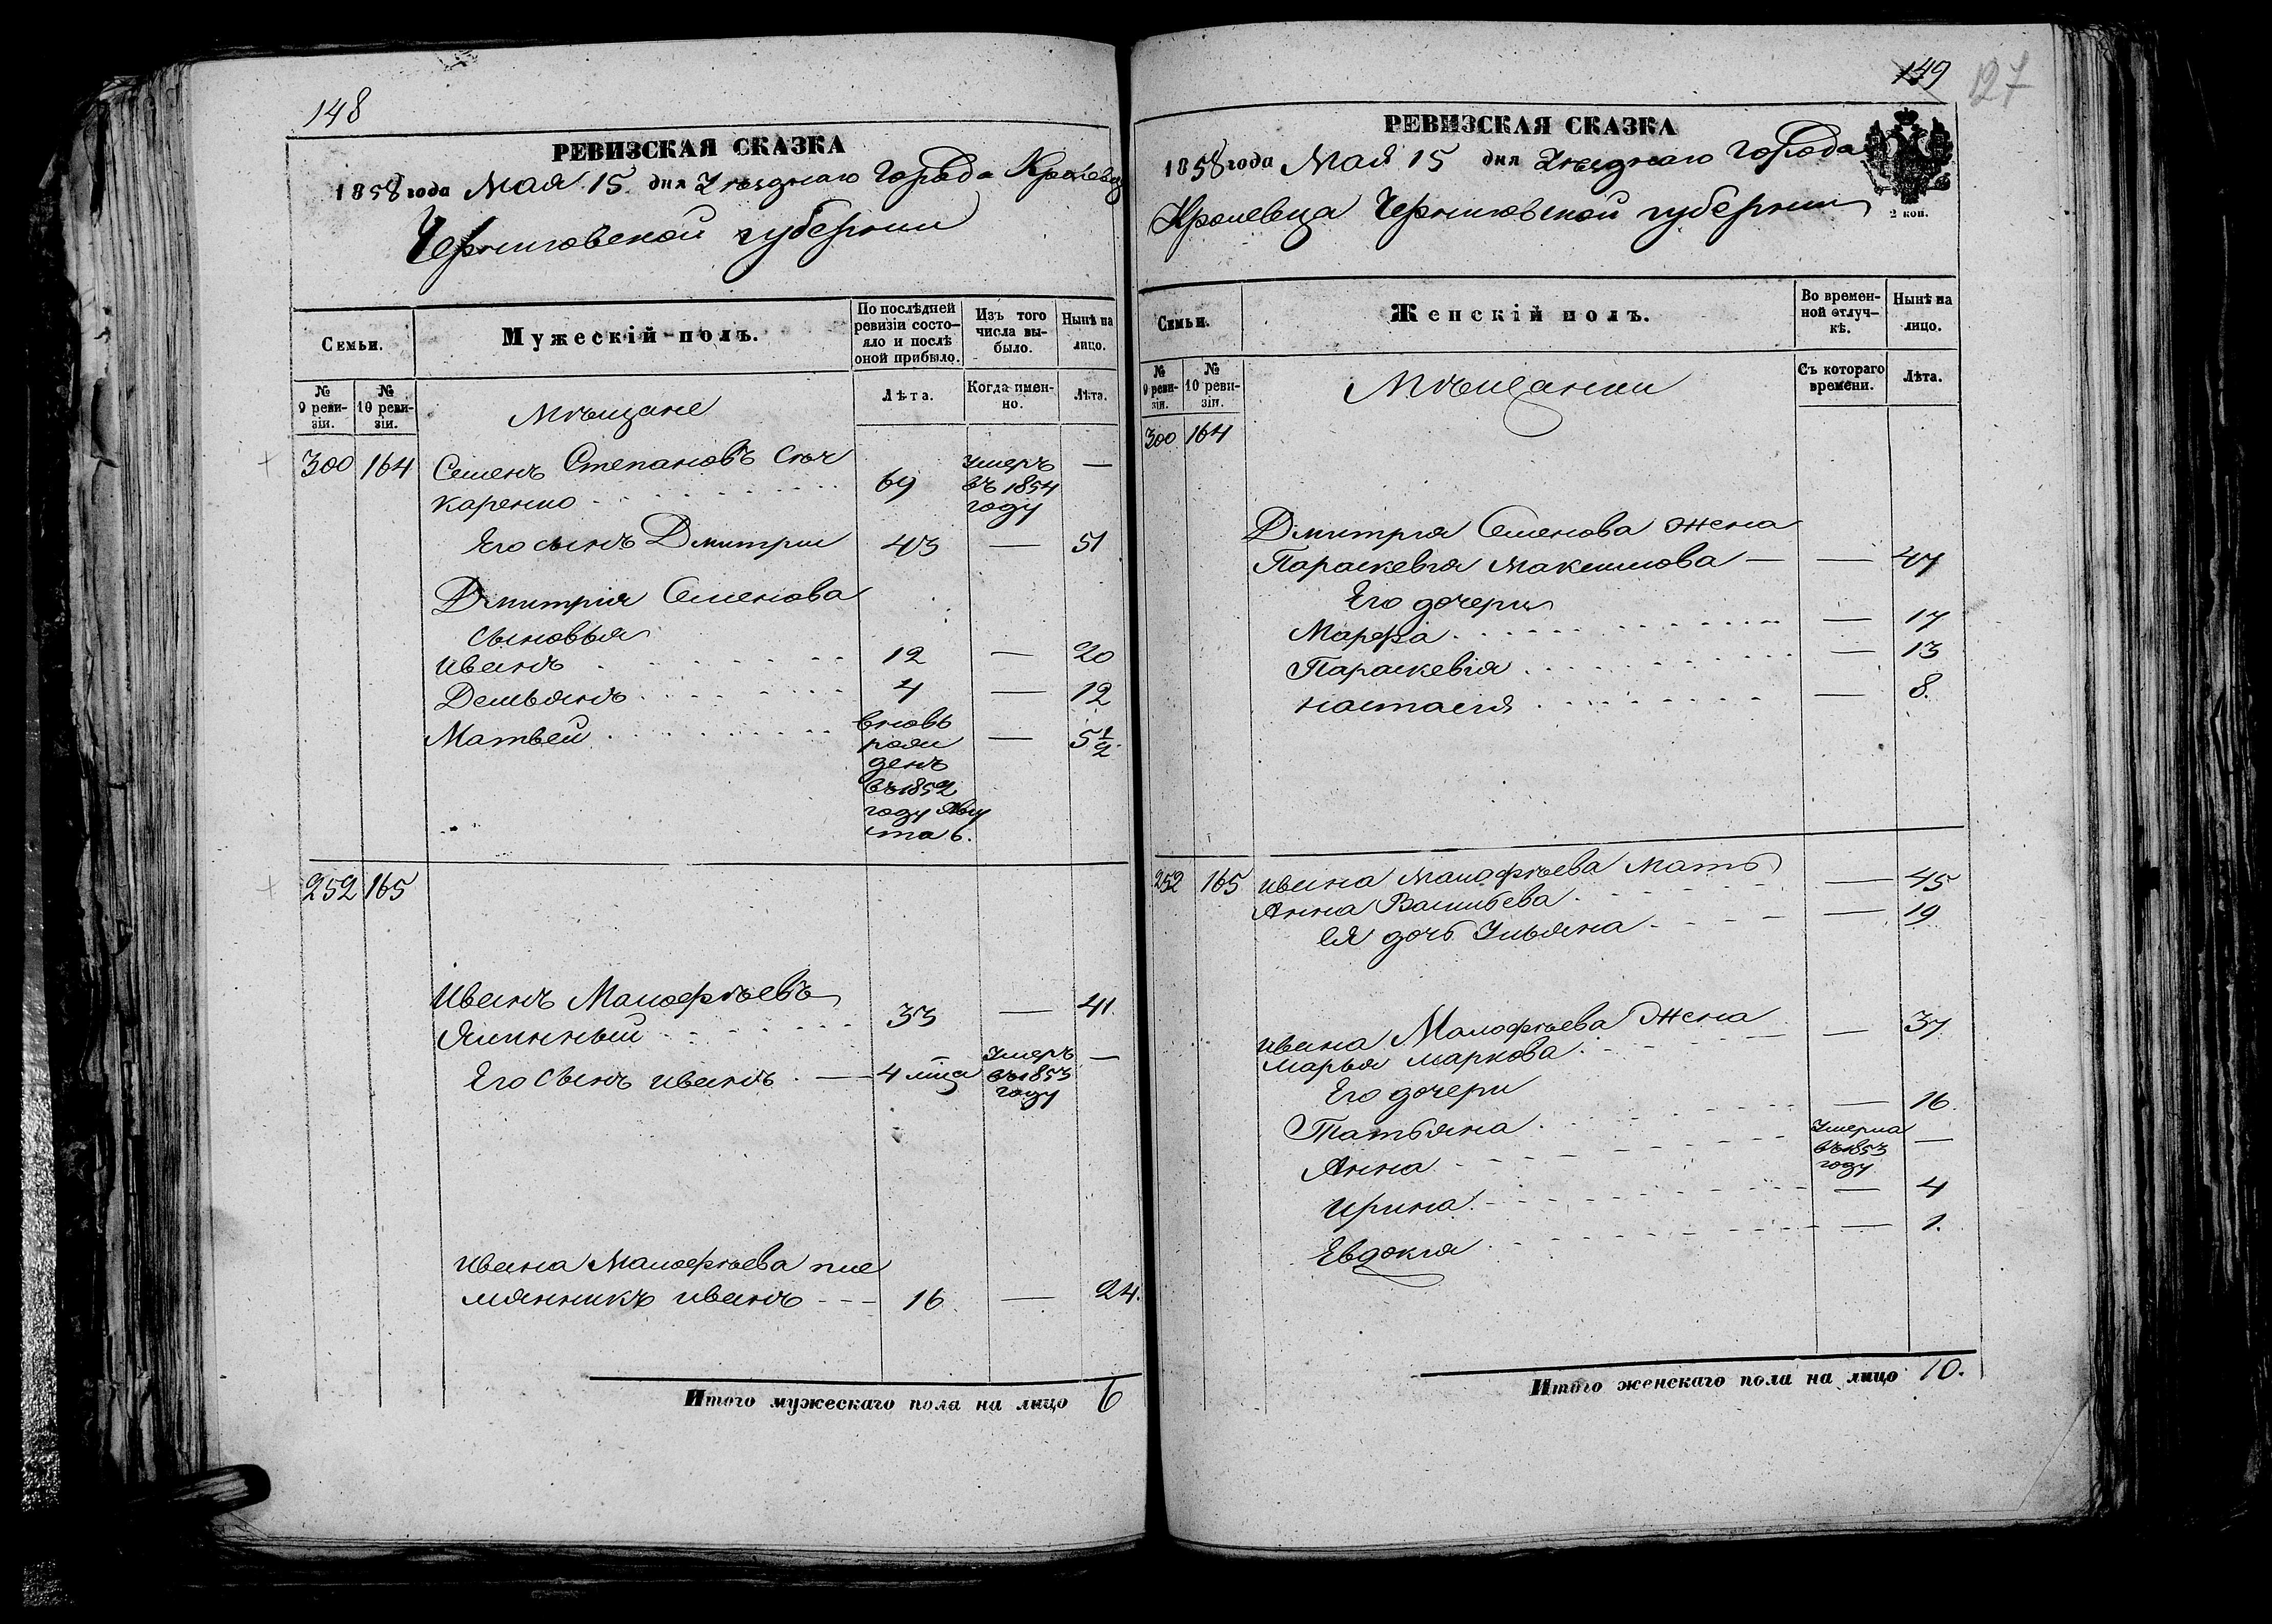 148
РЕВИЗСКАЯ СКАЗКА
1858 года Мая 15 дня Уѣзднаго города Кролевца
Черниговской губернiи
Семьи.
Мужескiй полъ.
По послѣдней ревизiи состо-
яло и послѣ
оной прибыло.
Изъ того
числа вы-
было.
Нынѣ на
лицо.
№
9 реви-
зiи.
№
10 реви-
зiи.
Мѣщане
Лѣта.
Когда имен-
но.
Лѣта.
300 164 Семенъ Степановъ
каренко 69 Умеръ въ 1854 году —
Его сынъ Дмитрiи 43 — 51
Дмитрiя Семенова
сыновья
Иванъ 12 — 20
Демьянъ 4 — 12
Матвей вновь — 5 1/2
рож
денъ
въ 1852
году Авгу
ста 6.
252 165
Иванъ Малофѣевъ 33 — 41.
Его сынъ иванъ — 4 мца Умеръ въ 1853 году —
Ивана Малофѣева пле
мянникъ иванъ 16 — 24.
Итого мужескаго пола на лицо 6
149 127
РЕВИЗСКАЯ СКАЗКА
1858 года Мая 15 дня Уѣзднаго города
Кролевца Черниговской губернiи
2 коп.
Семьи.
Женскiй полъ.
Во времен-
ной отлуч-
кѣ.
Нынѣ на
лицо.
№
9 реви-
зiи.
№
10 реви-
зiи.
Мѣщанки
Съ котораго
времени.
Лѣта.
300 164
Дмитрiя Семенова жена
Параскевiя Максимова — — 47
Его дочери
Марфа — 17
Параскевiя — 13
настасiя — 8.
252 165 ивана Малофѣева Мать — 45
Анна Васильева
ея дочь Ульяна — 19
ивана Малофѣева Жена — 37
Марья маркова
Его дочери
Татьяна — 16.
Анна Умерла въ 1853 году —
ирина — 4
Евдокiя — 1.
Итого женскаго пола на лицо 10.